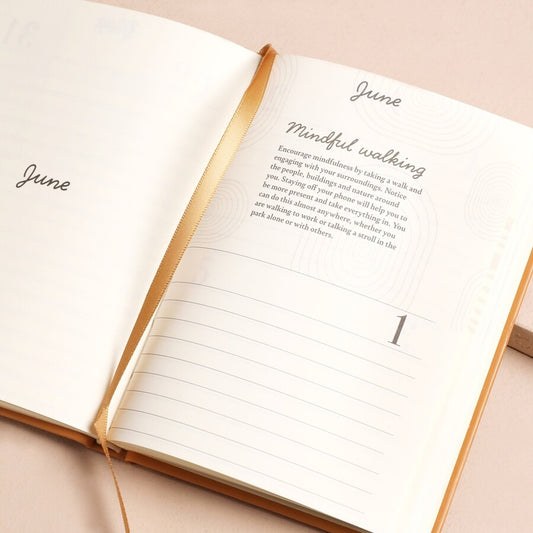 June
June
Mindful walking
Encourage mindfulness by taking a walk and
engaging with your surroundings. Notice
the people, buildings and nature around
you. Staying off your phone will help you to
be more present and take everything in. You
can do this almost anywhere, whether you
are walking to work or talking a stroll in the
park alone or with others.
1